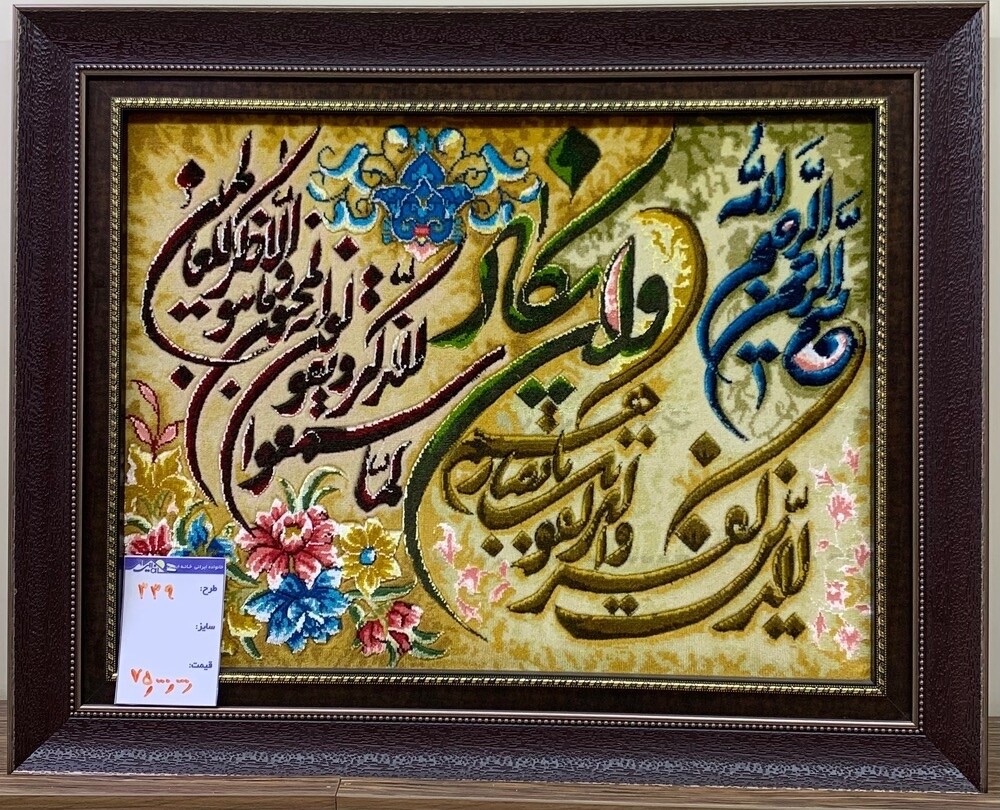 بسم الله الرحمن الرحیم
وان یکاد
الذین کفروا
لیزلقونک بابصارهم
لما سمعوا
الذکر ویقولون
انه لمجنون وما هو
الا ذکر للعالمین
خانواده ایرانی خانه
طرح:
سایز:
قیمت: